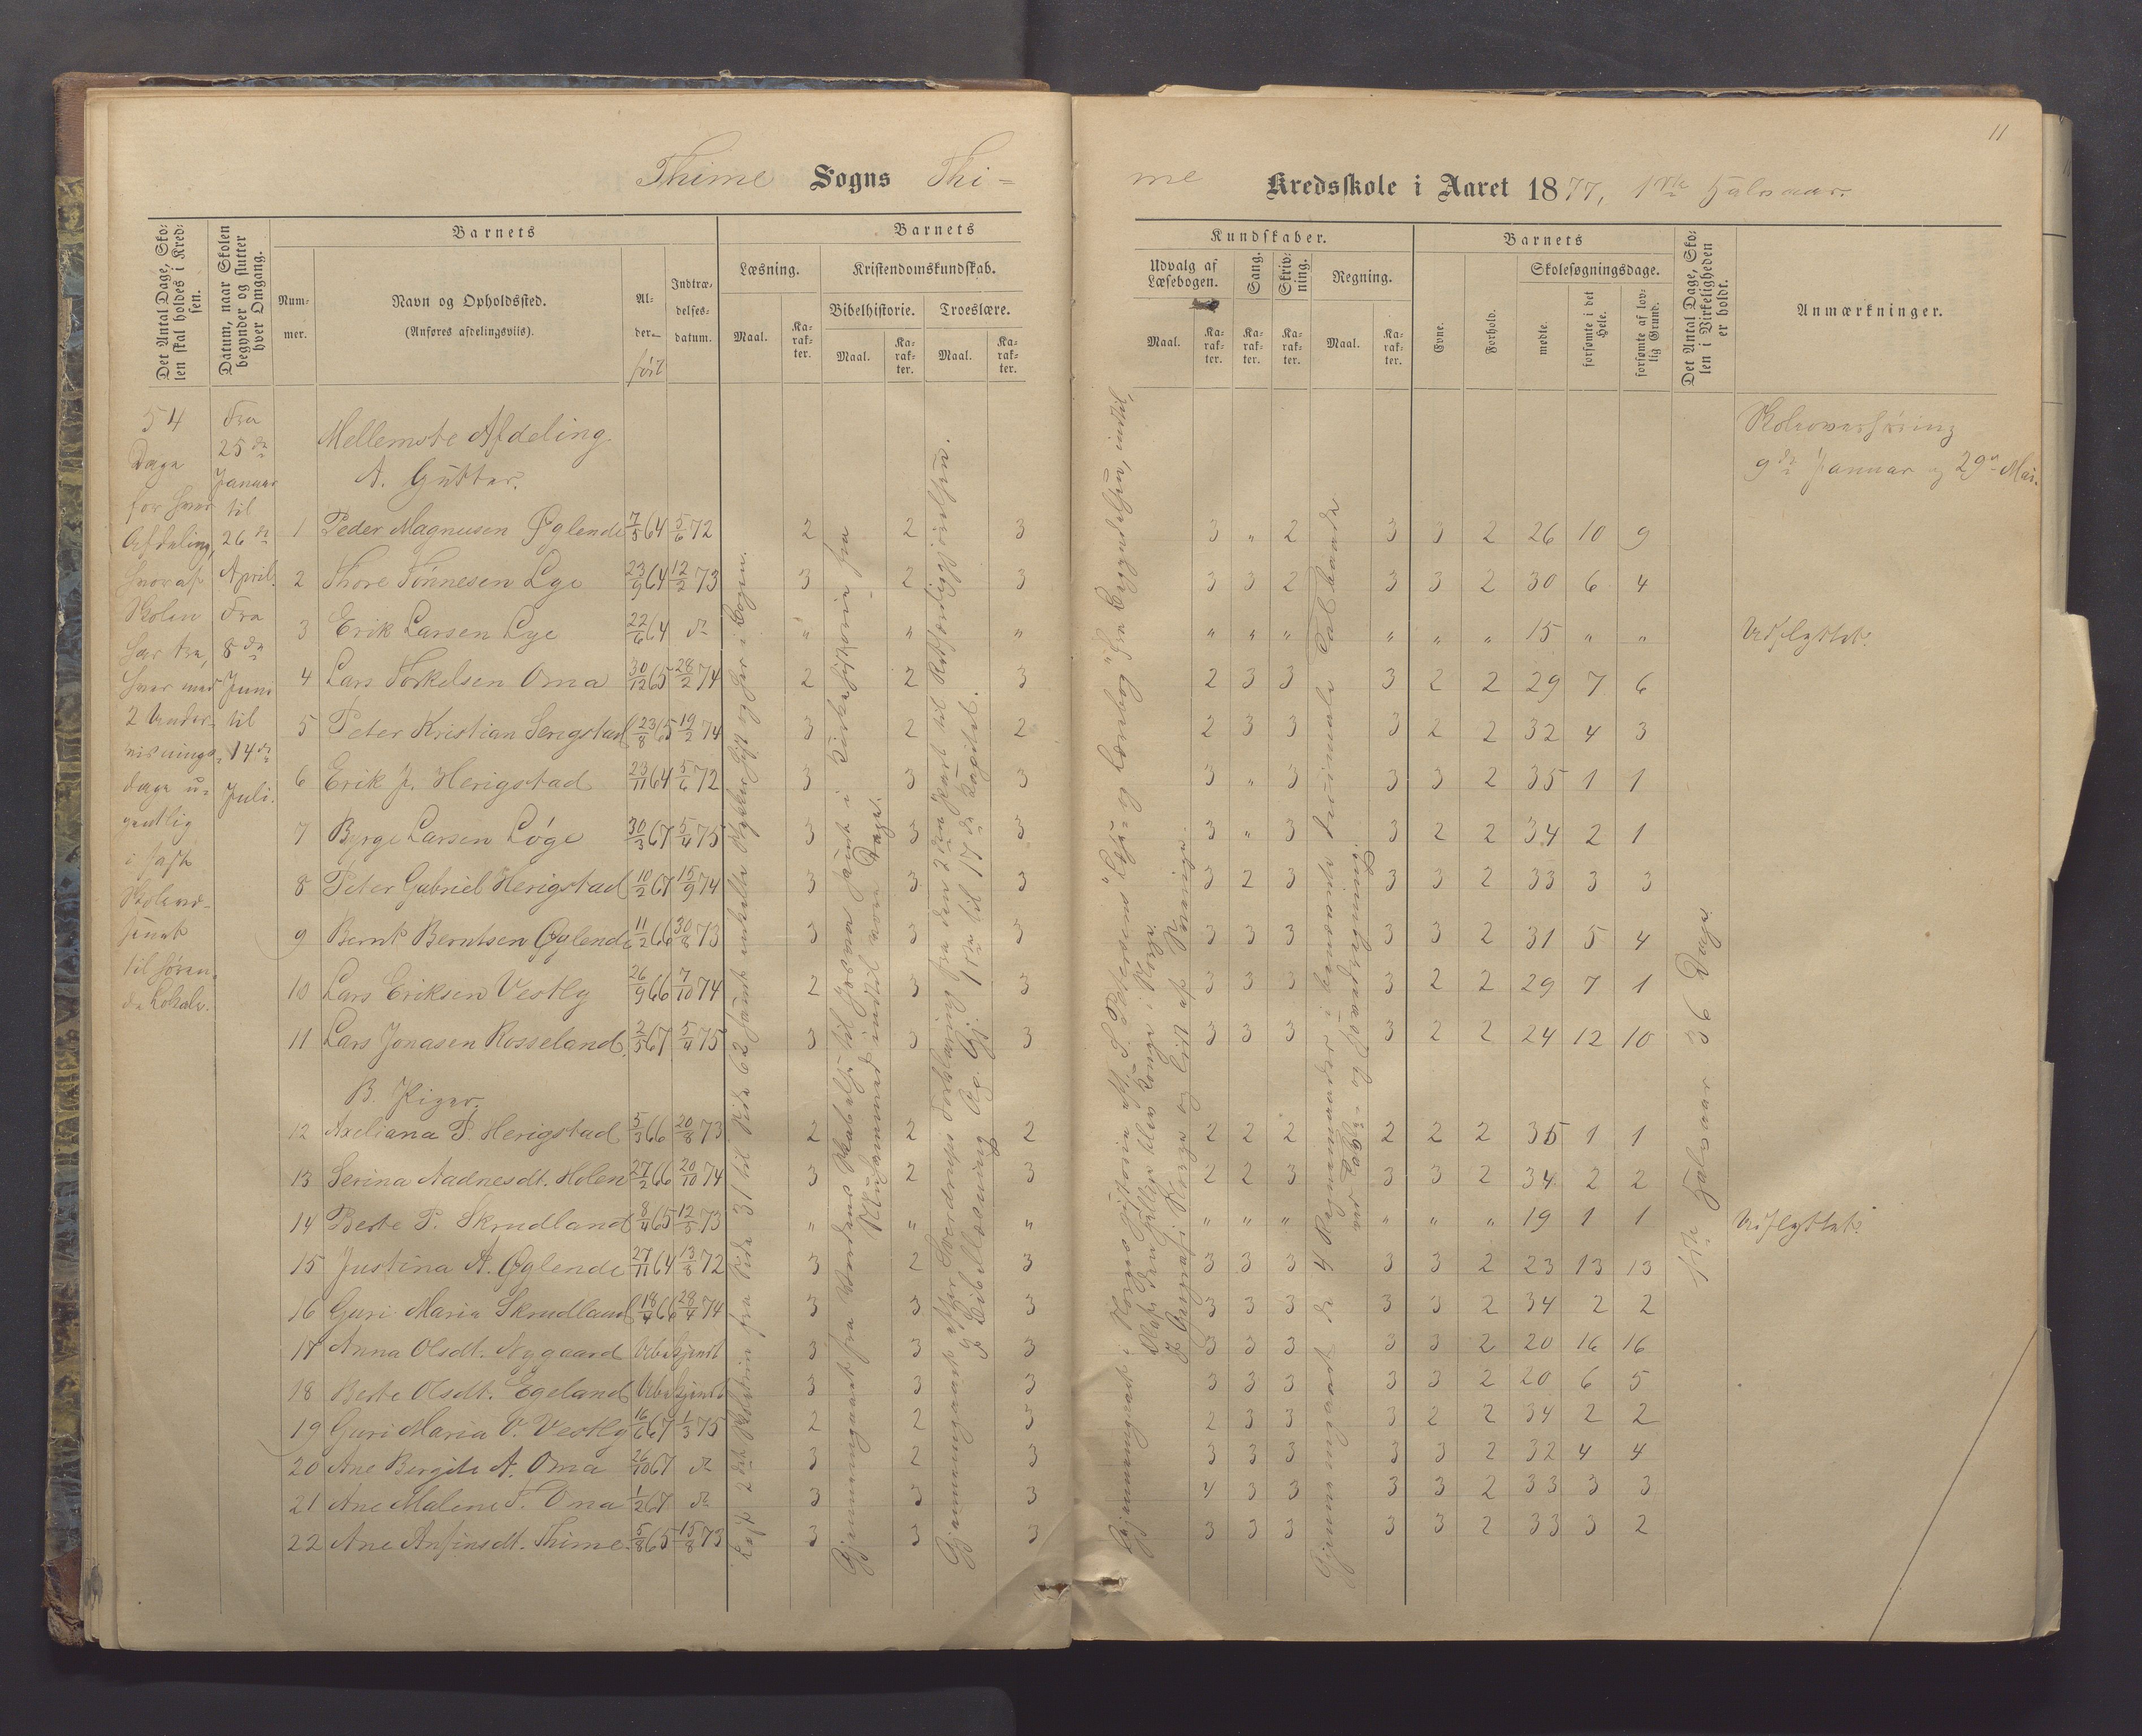 11
Thime Sogns Thi-
me Kredsskole i Aaret 1877, 1ste Halvaar.
Det Antal Dage, Sko-
len skal holdes i Kred-
sen.
Datum, naar Skolen
begynder og slutter
hver Omgang.
Barnets
Num-
mer.
Navn og Opholdssted.
(Anføres afdelingsviis).
Al-
der.
født
Indtræ-
delses-
datum.
Barnets
Læsning.
Maal.
Ka-
rak-
ter.
Kristendomskundskab.
Bibelhistorie.
Maal.
Ka-
rak-
ter.
Troeslære.
Maal.
Ka-
rak-
ter.
Kundskaber.
Udvalg af
Læsebogen.
Maal.
Ka-
rak-
ter.
Sang.
Ka-
rak-
ter.
Skriv-
ning.
Ka-
rak-
ter.
Regning.
Maal.
Ka-
rak-
ter.
Barnets
Evne.
Forhold.
Skolesøgningsdage.
mødte.
forsømte i det
Hele.
forsømte af lov-
lig Grund.
Det Antal Dage, Sko-
len i Virkeligheden
er holdt.
Anmærkninger.
54
Dage
for hver
Afdeling,
hvoraf
Skolen
har tre,
hver med
2 Under-
visnings-
dage u-
gentlig
i fast
Skole
til høren-
de Lokale.
Fra
25de
Januar
til
26de
April.
Fra
8de
Juni
til
14de
Juli.
Skoleoverhøring
9de Januar og 29de Mai.
Mellemste Afdeling.
A. Gutter.
1 Peder Magnusen Øglende 7/5 64 5/6 72 2 2 3 3 " 2 3 3 2 26 10 9
2 Thore Tønnesen Lye 23/9 64 12/2 73 3 2 3 3 3 2 3 3 2 30 6 4
3 Erik Larsen Lye 22/6 64 do " " " " " " " " " 15 " " Udflyttet.
4 Lars Torkelsen Oma 30/12 65 28/2 74 2 2 3 2 3 3 3 2 2 29 7 6
5 Peter Kristian Serigstad 23/8 65 19/2 74 3 2 2 2 3 3 3 2 2 32 4 3
6 Erik J. Herigstad 23/11 64 5/6 72 3 3 3 3 " 3 3 3 2 35 1 1
7 Byrge Larsen Løge 30/3 67 5/4 75 3 3 3 3 " 3 3 2 2 34 2 1
8 Peter Gabriel Herigstad 10/2 67 15/9 74 3 3 3 3 2 3 3 3 2 33 3 3
9 Bernt Berntsen Øglende 11/2 66 30/8 73 3 3 3 3 3 3 3 3 2 31 5 4
10 Lars Eriksen Vestly 26/9 66 7/10 74 2 3 3 3 3 3 3 2 2 29 7 1
11 Lars Jonasen Rosseland. 2/5 67 5/4 75 3 3 3 3 3 3 3 2 2 24 12 10
B. Piger.
12 Axeliana T. Herigstad 5/3 66 20/8 73 2 2 2 2 2 2 2 2 2 35 1 1
13 Serina Aadnesdt. Holen 27/2 66 20/10 74 3 2 3 2 2 3 3 3 2 34 2 2
14 Berte P. Skrudland 8/4 65 12/5 73 " " " " " " " " " 19 1 1 Udflyttet.
15 Justina A. Øglende 27/11 64 13/8 72 3 2 3 3 3 3 3 3 2 23 13 13
16 Guri Maria Skrudland 18/4 66 28/4 74 3 3 3 3 3 3 3 3 2 34 2 2
17 Anna Olsdt. Nygaard Ubekjendt 3 3 3 3 3 3 3 3 2 20 16 16
18 Berte Olsdt. Egeland Ubekjendt 3 3 3 3 3 3 3 3 2 20 6 5
19 Guri Maria O. Vestly 16/6 67 1/3 75 2 2 3 2 3 3 3 2 2 34 2 2
20 Ane Bergite A. Oma 26/10 67 do 3 2 3 3 3 3 3 3 2 32 4 4
21 Ane Malene T. Oma 1/2 67 do 3 3 3 4 3 3 3 3 2 33 3 3
22 Ane Anfinsdt. Thime. 5/8 65 15/8 73 3 3 3 3 3 3 3 3 2 33 3 2
Læst 2det Skoletrin fra Side 31 til Side 62 samt enkelte Stykker hist og her i Bogen.
Gjennemgaaet fra Verdens Skabelse til Josva samt i Kirkehistorie fra
Muhammed indtil vore Dage.
Gjennemgaaet efter Sverdrups Forklaring fra den 2den Part til Retfærdiggjørelsen.
I Bibellæsning Ap. Gj. 1ste til 17de Kapitel.
Gjennemgaaet i Norges Historie efter P. A. Jensens Læsebog fra Begyndelsen indtil
Olaf den hellige blev Konge i Norge.
I Geografi Norge og lidt af Sverige.
Gjennemgaaet de 4 Regnemaader i benævnte decimale Tal baade
med Tavle- og Hovedregning.
1ste Halvaar 36 Dage